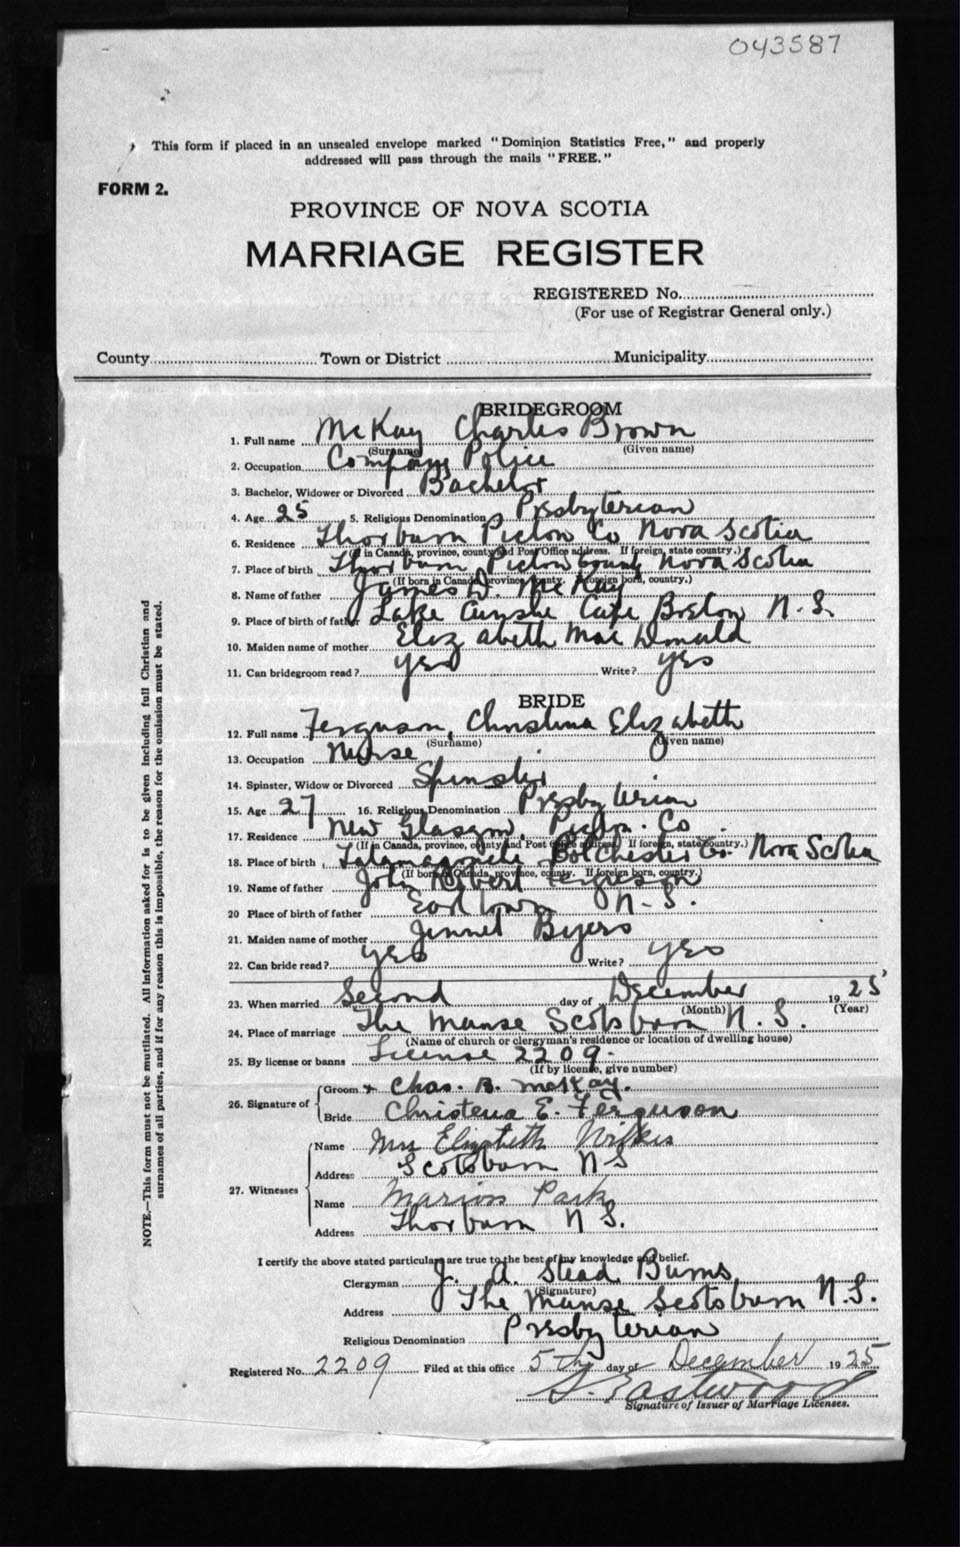 043587
This form if placed in an unsealed envelope marked "Dominion Statistics Free," and properly
addressed will pass through the mails "FREE."
FORM 2.
PROVINCE OF NOVA SCOTIA
MARRIAGE REGISTER
REGISTERED No.
(For use of Registrar General only.)
County Town or District Municipality
NOTE.—This form must not be mutilated. All information asked for is to be given including full Christian and
surnames of all parties, and if for any reason this is impossible, the reason for the omission must be stated.
BRIDEGROOM
1. Full name McKay Charles Brown
(Surname) (Given name)
2. Occupation Company Police
3. Bachelor, Widower or Divorced Bachelor
4. Age 25 5. Religious Denomination Presbyterian
6. Residence Thorburn Pictou Co Nova Scotia
(If in Canada, province, county and Post Office address. If foreign, state country.)
7. Place of birth Thorburn Pictou County Nova Scotia
(If born in Canada, province, county. If foreign born, country.)
8. Name of father James D. McKay
9. Place of birth of father Lake Ainslie Cape Breton N.S.
10. Maiden name of mother Elizabeth MacDonald
11. Can bridegroom read? yes Write? yes
BRIDE
12. Full name Ferguson, Christina Elizabeth
(Surname) (Given name)
13. Occupation Nurse
14. Spinster, Widow or Divorced Spinster
15. Age 27 16. Religious Denomination Presbyterian
17. Residence New Glasgow, Pictou Co.
(If in Canada, province, county and Post Office address. If foreign, state country.)
18. Place of birth Colchester Co. Nova Scotia
(If born in Canada, province, county. If foreign born, country.)
19. Name of father John Robert Ferguson
20 Place of birth of father Earltown N.S.
21. Maiden name of mother Jennet Byers
22. Can bride read? yes Write? yes
23. When married Second day of December 1925
(Month) (Year)
24. Place of marriage The Manse Scotsburn N.S.
(Name of church or clergyman's residence or location of dwelling house)
25. By license or banns License 2209.
(If by license, give number)
26. Signature of Groom x Chas. B. McKay.
Bride Christena E. Ferguson
27. Witnesses Name Mrs Elizabeth Wilkes
Address Scotsburn N S
Name Marion Park
Address Thorburn N S.
I certify the above stated particulars are true to the best of my knowledge and belief.
Clergyman J. A. Stead Burns
(Signature)
Address The Manse Scotsburn N.S.
Religious Denomination Presbyterian
Registered No. 2209 Filed at this office 5th day of December 1925
S. Eastwood
Signature of Issuer of Marriage Licenses.